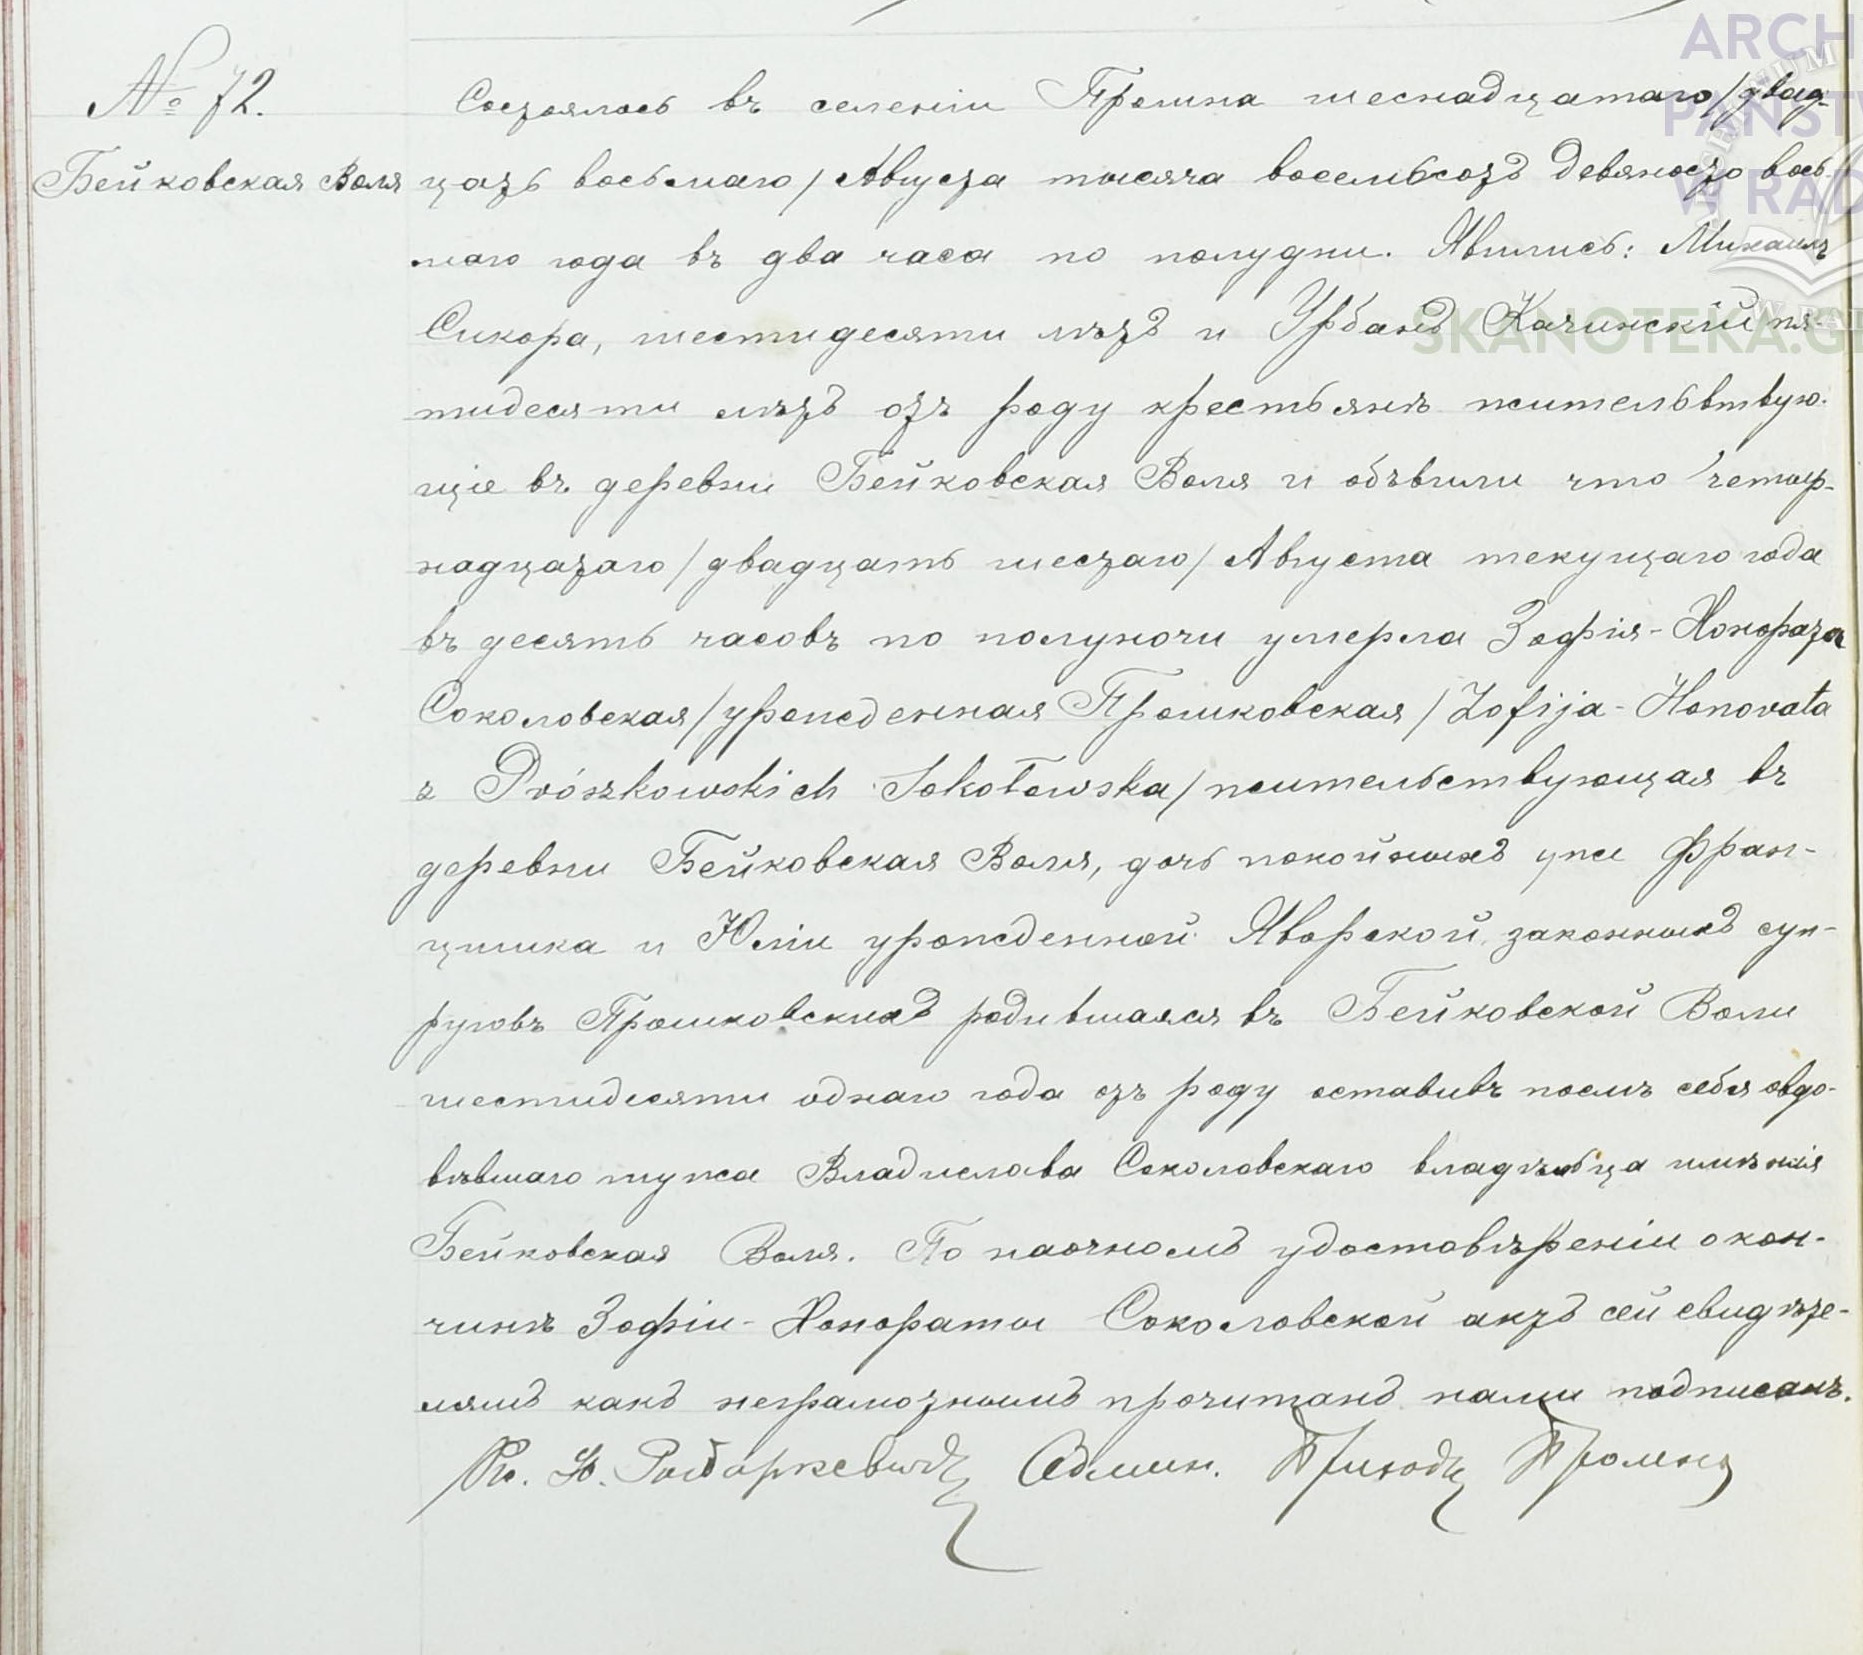 № 72.
Бейковская Воля
Состоялось въ селеніи Промна шеснадцатаго/двад-
цать восьмаго/Августа тысяча восемьсотъ девяносто вось-
маго года въ два часа по полудни. Явились: Михаилъ
Сикора, шестидесяти лѣтъ и Урбанъ Качинскій пя-
тидесяти лѣтъ отъ роду крестьянъ жительствую-
щіе въ деревни Бейковская Воля и объвили что четыр-
надцатаго/двадцать шестаго/Августа текущаго года
въ десять часовъ по полуночи умерла Зофія-Хонората
Соколовская/урожденная Прошковская/Zofija-Honorata
z Prószkowskich Sokołowska/жительствующая въ
деревни Бейковская Воля, дочь покойныхъ уже Фран-
цишка и Юліи урожденной Яворской законныхъ суп-
руговъ Прошковскихъ родившаяся въ Бейковской Воли
шестидесяти однаго года отъ роду оставивъ послѣ себя овдо-
вѣвшаго мужа Владислава Соколовскаго владѣльца имѣнія
Бейковская Воля. По наочномъ удостовѣреніи о кон-
чинѣ Зофіи-Хонораты Соколовской актъ сей свидѣте-
лямъ какъ неграмотнымъ прочитанъ нами подписанъ.
Кс. Админ. Приход Промна
ARCH
PAŃSTW
W RAD
SKANOTEKA.G